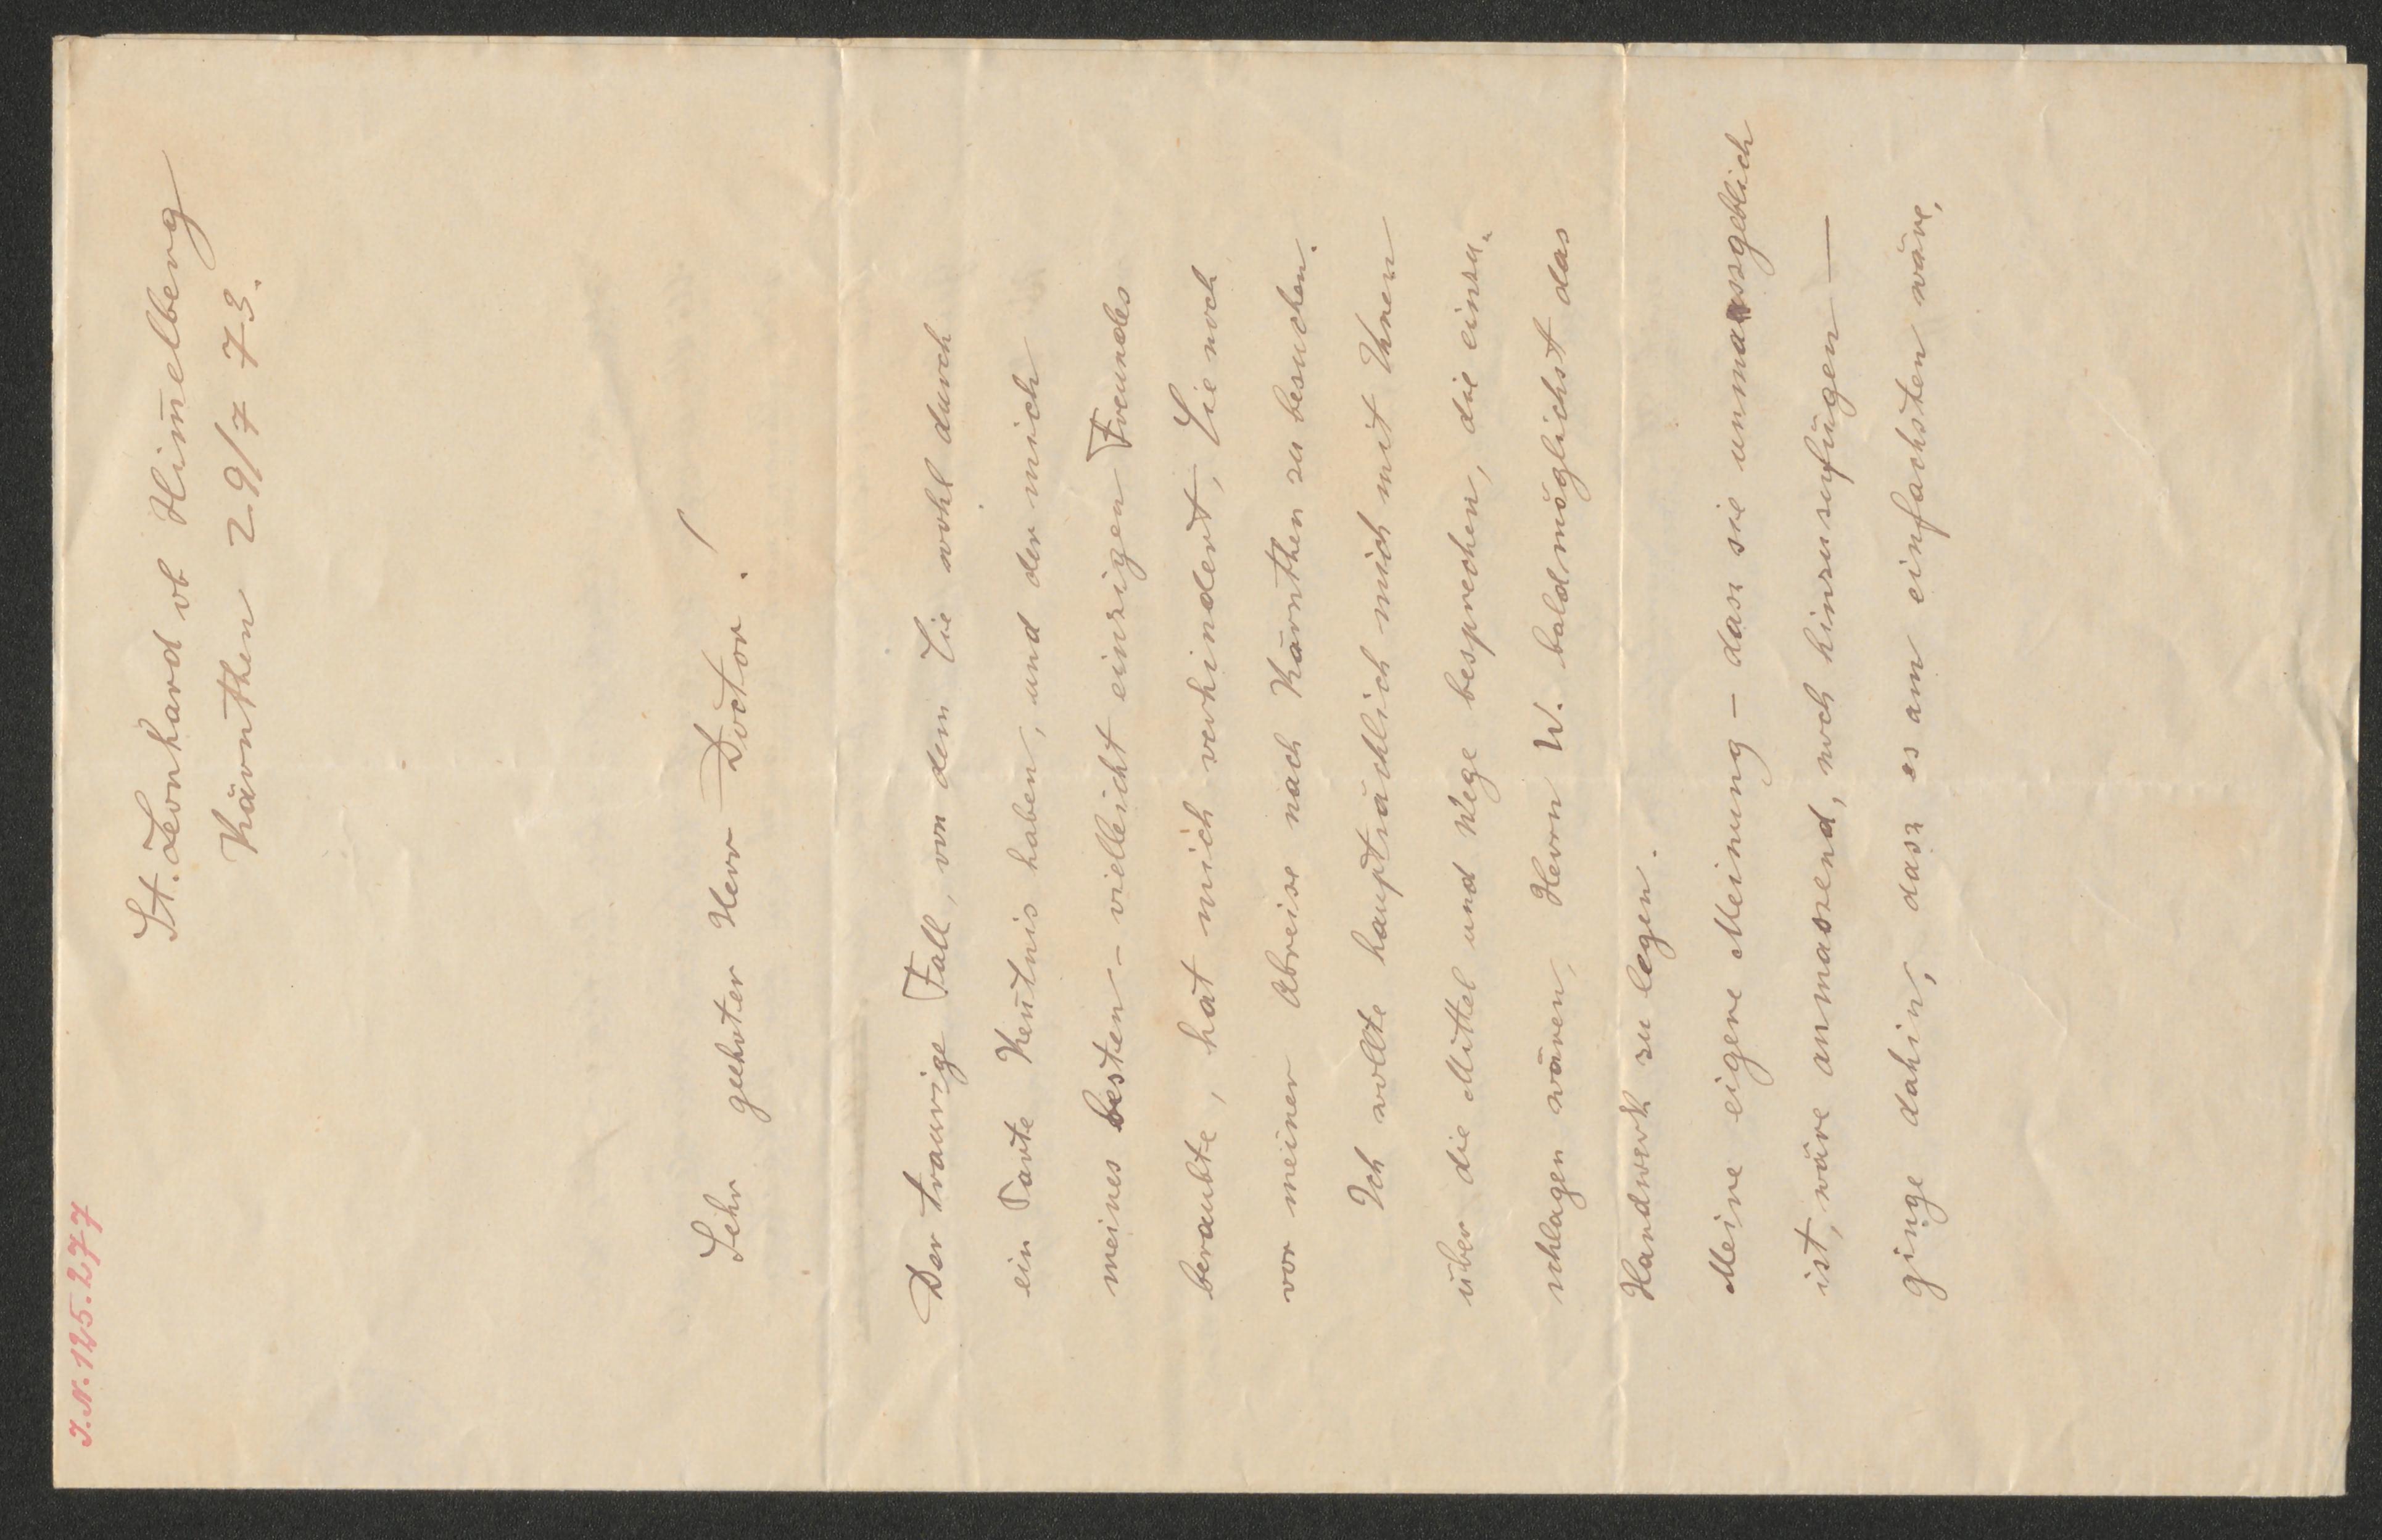 I.N. 125.277
St. Leonhard ob Him̅elberg
Kärnthen 29/7 73.
Sehr geehrter Herr Doctor!
Der traurige Fall, von dem Sie wohl durch
ein Parte Ken̅tnis haben, und der mich
meines besten – vielleicht einzigen Freundes
beraubte, hat mich verhindert, Sie noch
vor meiner Abreise nach Kärnthen zu besuchen.
Ich wollte hauptsächlich mich mit Ihnen
über die Mittel und Wege besprechen, die einzu„
schlagen wären, Herrn W. baldmöglichst das
Handwerk zu legen.
Meine eigene Meinung – dass sie unmassgeblich
ist, wäre anmassend, noch hinzuzufügen —
ginge dahin, dass es am einfachsten wäre,